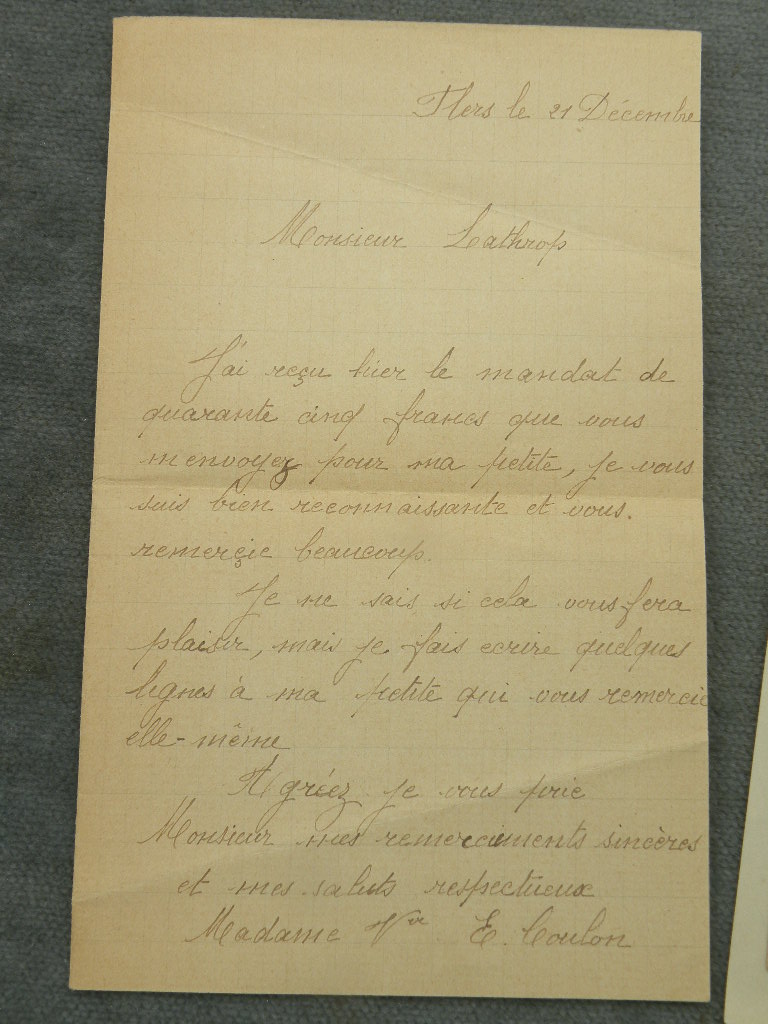 Flers le 21 Décembre
Monsieur Lathrop
J'ai reçu hier le mandat de
quarante cinq francs que vous
m'envoyez pour ma petite, je vous
suis bien reconnaissante et vous.
remerçie beaucoup.
Je ne sais si cela vous fera
plaisir, mais je fais ecrire quelques
lignes à ma petite qui vous remercie
elle-même
Agréez je vous prie
Monsieur mes remerciements sincères
et mes saluts respectueux
Madame Vve E. Coulon